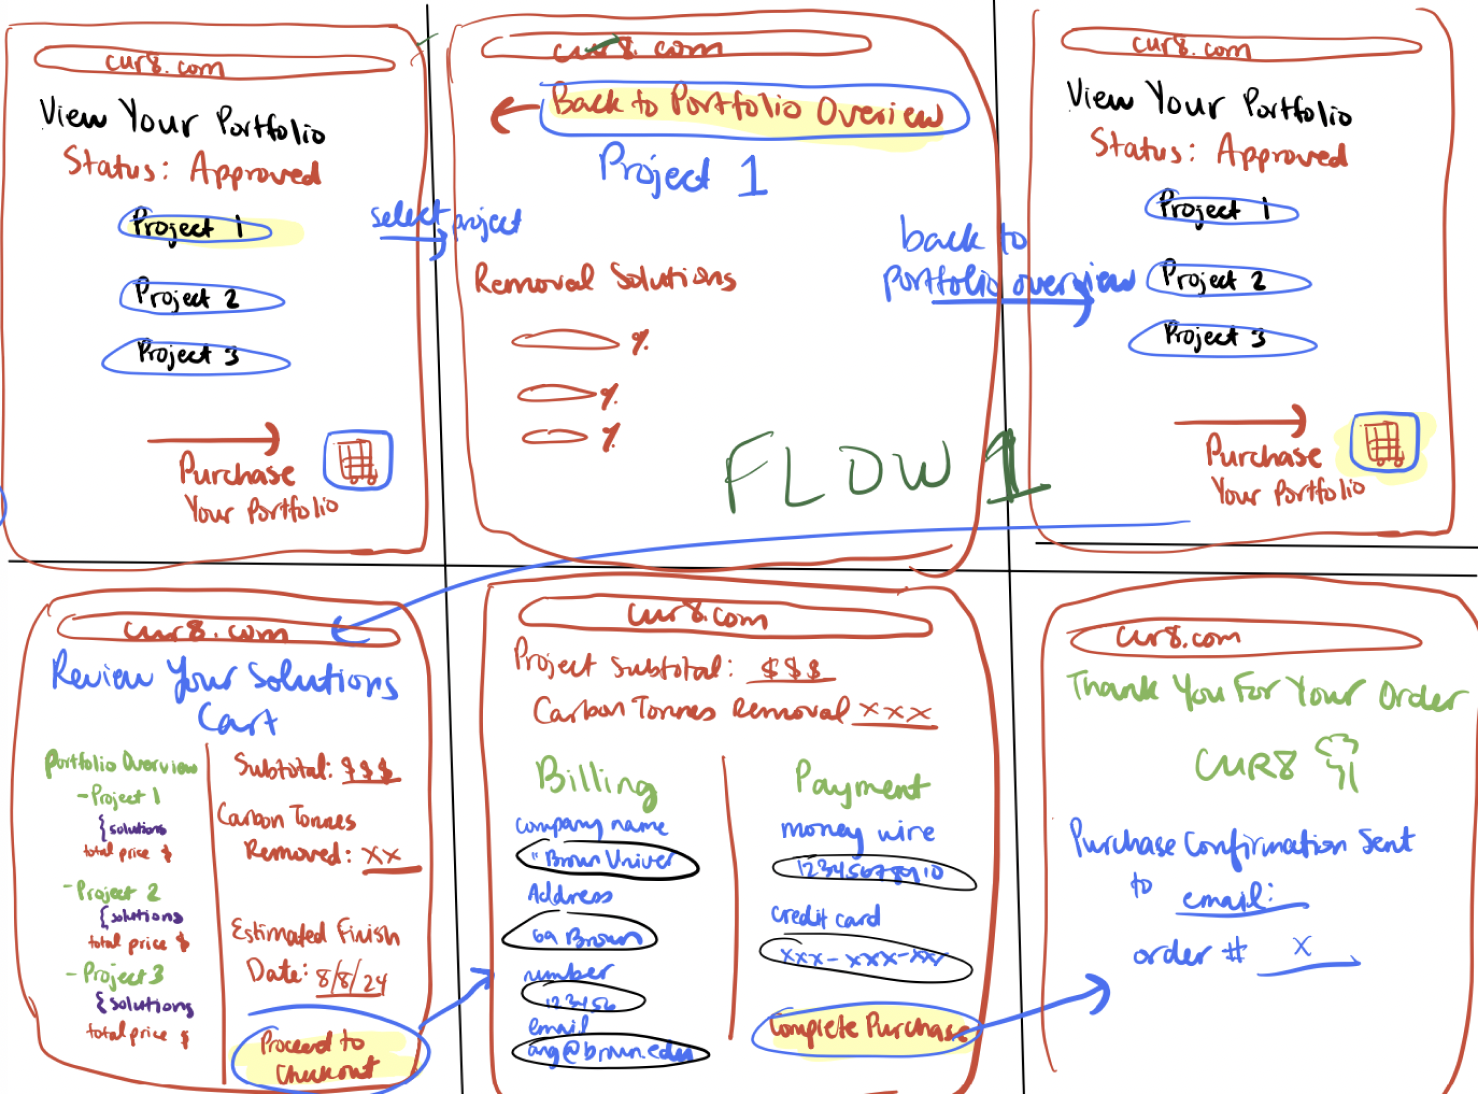 cur8.com
View Your Portfolio
Status: Approved
Project 1
Project 2
Project 3
Purchase
Your Portfolio
select project
cur8.com
Back to Portfolio Overview
Project 1
Removal Solutions
%
%
%
back to
portfolio overview
FLOW 1
cur8.com
View Your Portfolio
Status: Approved
Project 1
Project 2
Project 3
Purchase
Your Portfolio
cur8.com
Review Your Solutions
Cart
Portfolio Overview
- Project 1
{ solutions
total price $
- Project 2
{ solutions
total price $
- Project 3
{ solutions
total price $
Subtotal: $$$
Carbon Tonnes
Removed: XX
Estimated Finish
Date: 8/8/24
Proceed to
Checkout
cur8.com
Project Subtotal: $$$
Carbon Tonnes Removal XXX
Billing
company name
"Brown Univer
Address
69 Brown
number
123456
email
ang@brown.edu
Payment
money wire
12345678910
credit card
xxx-xxx-xxx
Complete Purchase
cur8.com
Thank You For Your Order
CUR8
Purchase Confirmation Sent
to email:
order # X